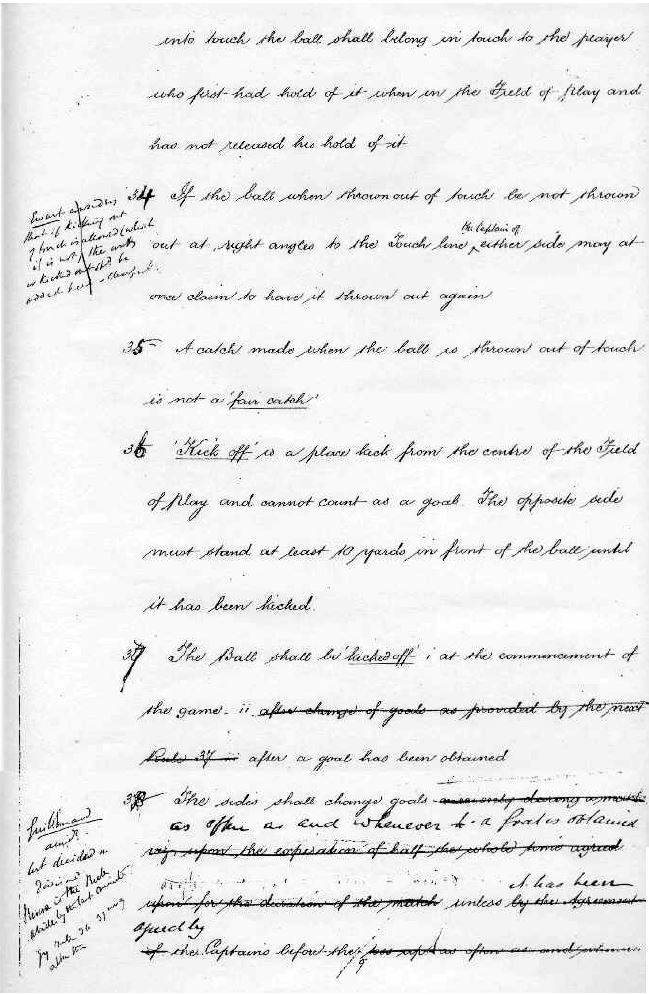 into touch the ball shall belong in touch to the player
who first had hold of it when in the Field of Play and
has not released his hold of it
34 If the ball when thrown out of touch be not thrown
the Captain of
out at right angles to the Touch line either side may at
once claim to have it thrown out again
Ewart considers
that if kicking out
of touch is allowed (which
it is not) the words
or kicked out shd be
added here
35 A catch made when the ball is thrown out of touch
is not a 'fair catch'
36 'Kick off' is a place kick from the centre of the Field
of Play and cannot count as a goal. The opposite side
must stand at least 10 yards in front of the ball until
it has been kicked.
37 The Ball shall be 'kicked off' i at the commencement of
the game. ii after change of goals as provided by the next
Rule 37 iii after a goal has been obtained
38 The sides shall change goals
as often as and whenever a goal is obtained
viz: upon the expiration of half the whole time agreed
it has been
upon for the duration of the match unless by the Agreement
agreed by
of the Captains before the as often as and
decided in
is the Rule
by rule 36 37 may